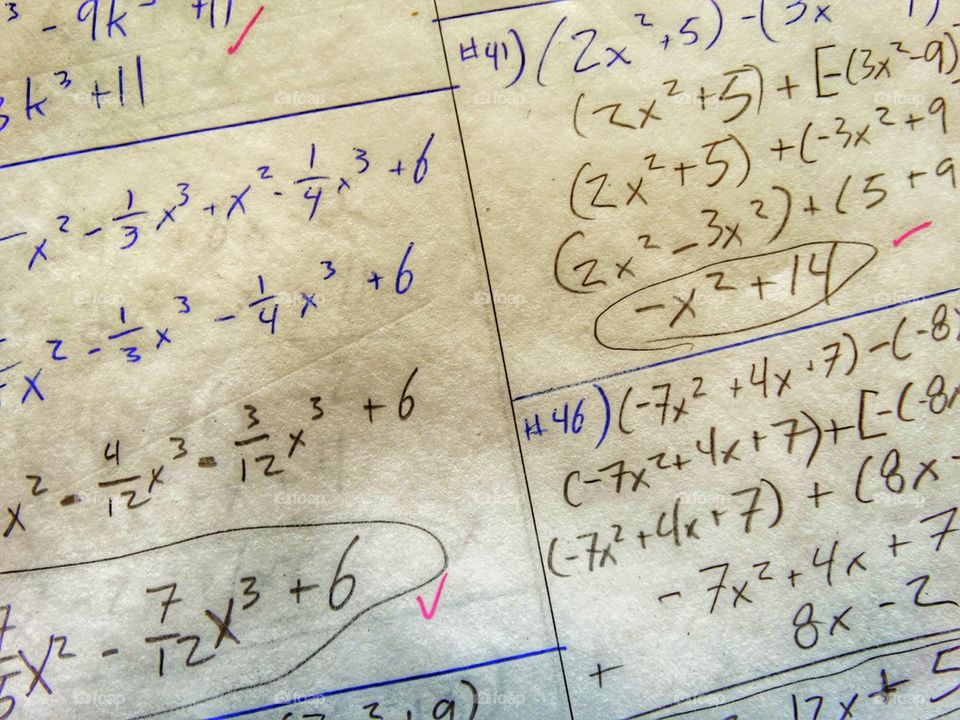 ³ - 9k +11
3k³ + 11
- x² - 1/3 x³ + x² - 1/4 x³ + 6
x² - 1/3 x³ - 1/4 x³ + 6
x² - 4/12 x³ - 3/12 x³ + 6
7/5 x² - 7/12 x³ + 6
#41) (2x² + 5) - (3x
(2x² + 5) + [-(3x² - 9)
(2x² + 5) + (-3x² + 9
(2x² - 3x²) + (5 + 9
-x² + 14
#46) (-7x² + 4x + 7) - (-8x
(-7x² + 4x + 7) + [-(-8x
(-7x² + 4x + 7) + (8x -
- 7x² + 4x + 7
+ 8x - 2
12x + 5